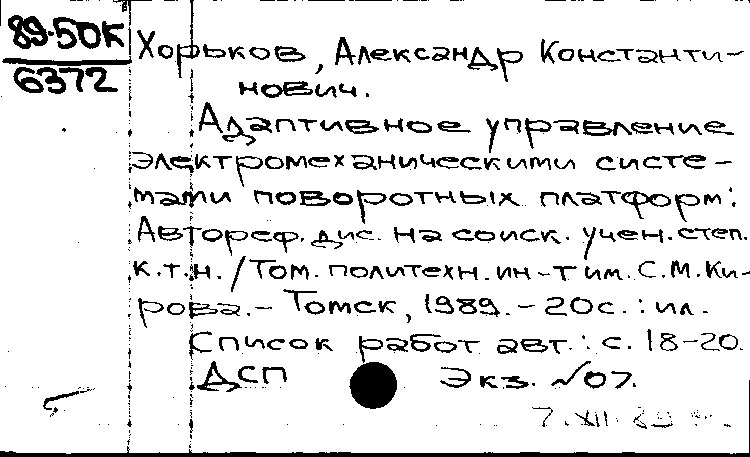 89-50К
6372
Хорьков, Александр Константи-
нович.
Адаптивное управление
электромеханическими систе-
мами поворотных платформ:
Автореф. дис. на соиск. учен. степ.
к.т.н. / Том. политехн. ин-т им. С.М. Ки-
рова. - Томск, 1989. - 20с. : ил.
Список работ авт.: с. 18-20.
ДСП Экз. №07.
7. XII.